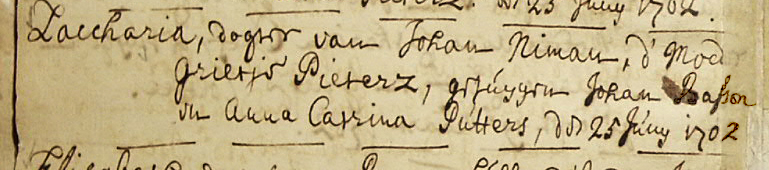 Pieterz. den 25 Junij 1702.
Zaccharia, dogter van Johan Niman, d' Moed
Grietje Pieterz, getuijgen Johan Basson
en Anna Catrina Putters, den 25 Junij 1702